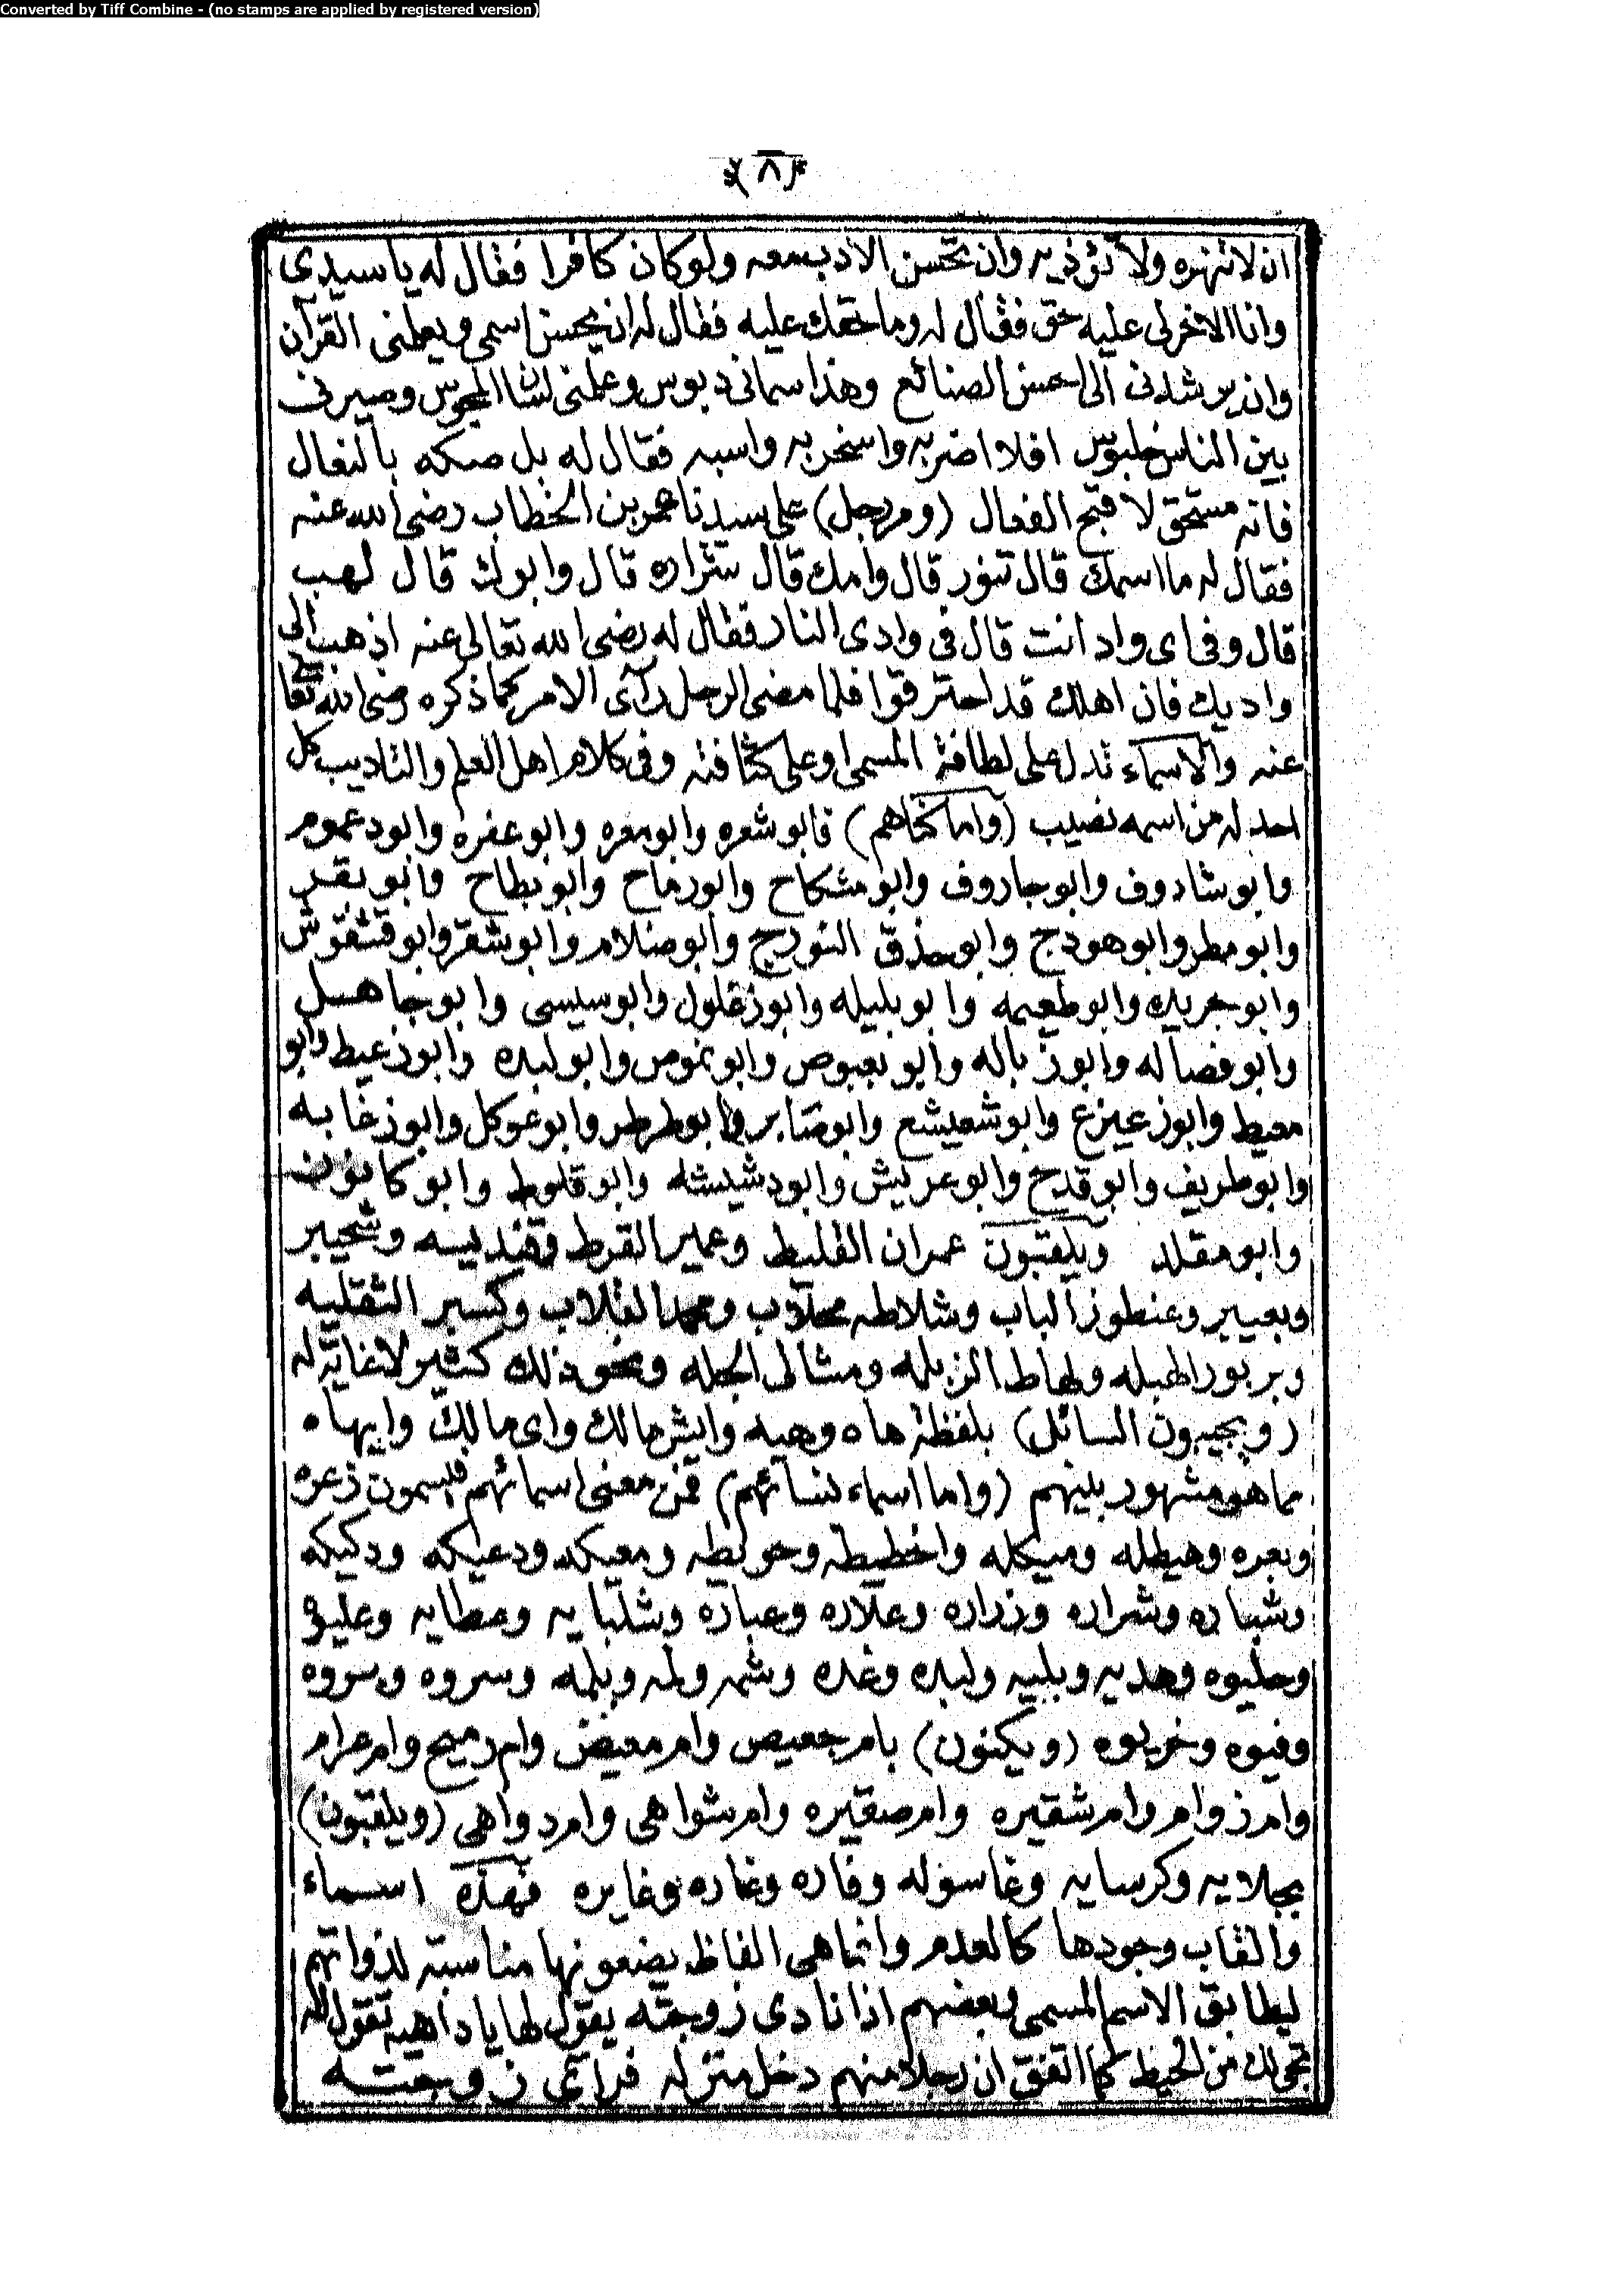 Converted by Tiff Combine - (no stamps are applied by registered version)
٨
ان لا تنهره ولا تؤذيه وان تحسن الادب معه ولو كان كافرا فقال له يا سيدى
وانا الاخر لى عليه حق فقال له وما حقك عليه فقال له ان يحسن اسمى ويعلمنى القرآن
وان يرشدنى الى احسن الصنائع وهذا سمانى دبوس وعلمنى لسان المجوس وصيرنى
بين الناس خلبوس افلا اضربه واسخر به واسبه فقال له بل صكه بالنعال
فانه مستحق لاقبح الفعال (ومر رجل) على سيدنا عمر بن الخطاب رضى الله عنه
فقال له ما اسمك قال تنور قال وامك قال شراره قال وابوك قال لهب
قال وفى اى واد انت قال فى وادى النار فقال له رضى الله تعالى عنه اذهب الى
واديك فان اهلك قد احترقوا فلما مضى الرجل رآى الامر كما ذكره رضى الله تعالى
عنه والاسماء تدل على لطافة المسمى وعلى كثافته وفى كلام اهل العلم والتاديب كل
احد له من اسمه نصيب (واما كناهم) فابو شعره وابو معره وابو عفره وابو دعموم
وابو شادوف وابو جاروف وابو مشكاح وابو رماح وابو بطاح وابو بقر
وابو مطر وابو هودج وابو حذق النورج وابو صلام وابو شقر وابو قشقوش
وابو جريده وابو طعيمه وابو بليله وابو زغلول وابو سيسى وابو جاهل
وابو فصاله وابو زباله وابو بعبوص وابو نموس وابو لبده وابو زعيط وابو
معيط وابو زعيزع وابو شعيشع وابو صابر وابو طرطر وابو عوكل وابو زغابه
وابو طريف وابو قدح وابو عريش وابو دشيشه وابو قلوط وابو كانون
وابو مقلد ويلقبون عمران الغليط وعمير القرط وقنديسه وشحيبر
وبعيبر وعنطوز الباب وشلاطه محلاب ومحمد الغلاب وكسبر الثقليه
وبربور الهبله ولهاط الزبله ومشالى الجله ونحو ذلك كثير لا غاية له
(ويجيبون السائل) بلفظة هاه وهيه وايش مالك واى مالك وايهاه
مما هو مشهور بينهم (واما اسماء نسائهم) فمن معنى اسمائهم فيسمون زعره
وبعره وهيطله وميكله واخطيطه وحويطه ومعيكه ودعيكه ودكيكه
وشباره وشراره وزراره وعلاره وعباره وشلبايه وعطايه وعليوه
وحليوه وهديه وبلبيه ولبده وغده وشمه ولمه وبلمه وسروه وبروه
وفيوه وخريوه (ويكنون) بام جعيص وام معيض وام رميح وام عرام
وام زوام وام شقيره وام صقيره وام شواهى وام دواهى (ويلقبون)
بجلايه وكرسايه وغاسوله وفاره وغاره وغايره فهذه اسماء
والقاب وجودها كالعدم وانما هى الفاظ يضعونها مناسبة لذواتهم
ليطابق الاسم المسمى وبعضهم اذا نادى زوجته يقول لها يا داهيه تقول له
تجى لك من الحيط كما اتفق ان رجلا منهم دخل منزله فرآى زوجته